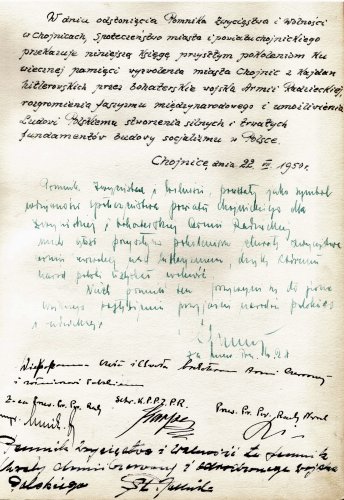 W dniu odsłonięcia Pomnika Zwycięstwa i Wolności
w Chojnicach, Społeczeństwo miasta i powiatu chojnickiego
przekazuje niniejszą Księgę przyszłym pokoleniom ku
wiecznej pamięci wyzwolenia miasta Chojnic z kajdan
hitlerowskich przez bohaterskie wojska Armii Radzieckiej,
rozgromienia faszyzmu międzynarodowego i umożliwienia
Ludowi Polskiemu stworzenia silnych i trwałych
fundamentów budowy socjalizmu w Polsce.
Chojnice, dnia 22 VII 1950 r.
Pomnik Zwycięstwa i Wolności, powstały jako symbol
wdzięczności społeczeństwa powiatu chojnickiego dla
Zwycięskiej i bohaterskiej Armii Radzieckiej
niech głosi przyszłym pokoleniom chwałę Zwycięstwa
Armii nad hitleryzmem, dzięki któremu
naród polski uzyskał wolność.
Niech pomnik ten przyczyni się do
pogłębienia przyjaźni narodu polskiego
i radzieckiego
cześć i chwała bohaterom Armii Czerwonej
i żołnierzom Polskim
Prez. Pow. Rady
Sekr. K.P. P.Z.P.R.
Prez. Pow. Rady Narod.
Pomnik Zwycięstwa i Wolności to pomnik
chwały Armii Czerwonej i odrodzonego wojska
Polskiego